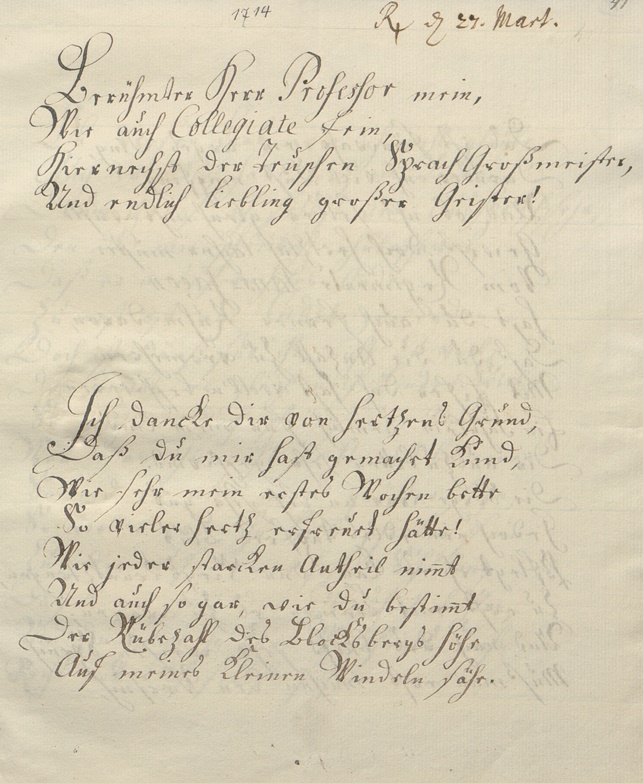 1714
Rx d 27. Mart.
Berühmter Herr Professor mein,
Wie auch Collegiate fein,
Hiernechst der Teuschen Sprach Großmeister,
Und endlich liebling großer Geister!
Ich dancke dir von hertzens Grund,
Daß du mir hast gemachet Kund,
Wie sehr mein erstes Wochen bette
So vieler hertz erfreuet hätte!
Wie jeder starcken Antheil nimt
Und auch so gar, wie du bestimt
Der Rübezahl des Blocksbergs höhe
Auf meines Kleinen Windeln sähe.